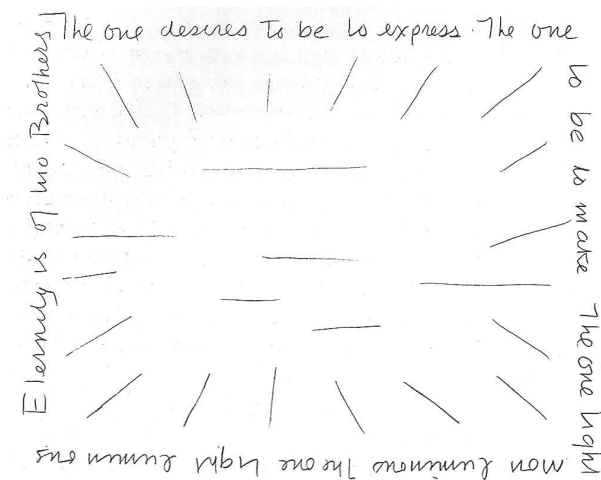 Eternity is of two Brothers
The one desires to be to express. The one
to be to make The one light
non luminous The one light luminous